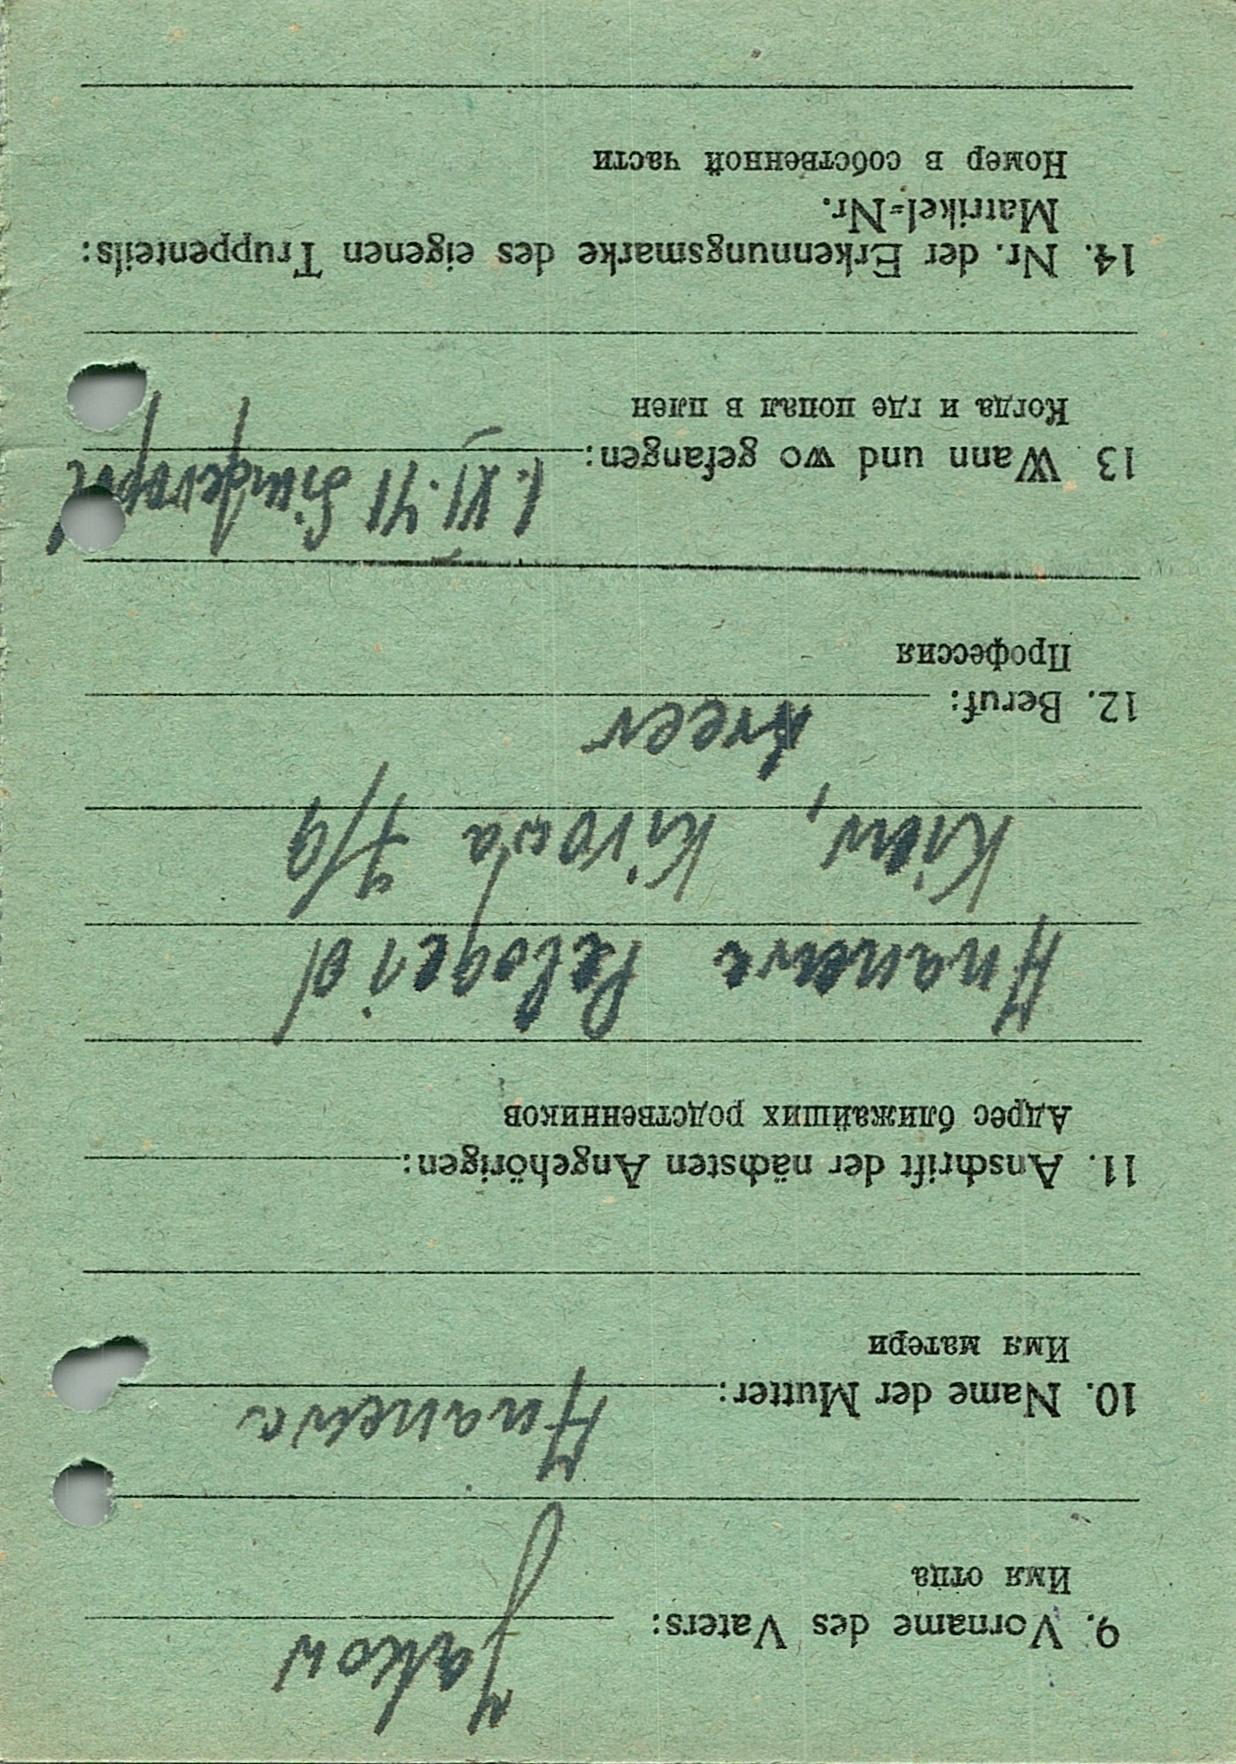 9. Vorname des Vaters: Jakow
Имя отца
10. Name der Mutter: Ananewa
Имя матери
11. Anschrift der nächsten Angehörigen:
Адрес ближайших родственников
Ananewa
Kiew, Kirowa 7/9
12. Beruf:
Профессия
13 Wann und wo gefangen: 1. XI. 41
Когда и где попал в плен
14. Nr. der Erkennungsmarke des eigenen Truppenteils:
Matrikel=Nr.
Номер в собственной части